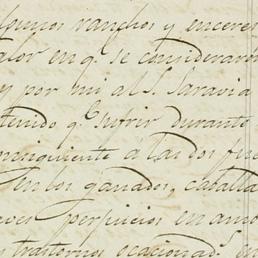 algunos ranchos y enceres
valor en q.e se consideraron
y por mi al S. Saravia
tenido q.e sufrir durante
consiguiente a las dos fue
en los ganados, caballa
aves perjuicios en amo
y trastornos ocacionad.s